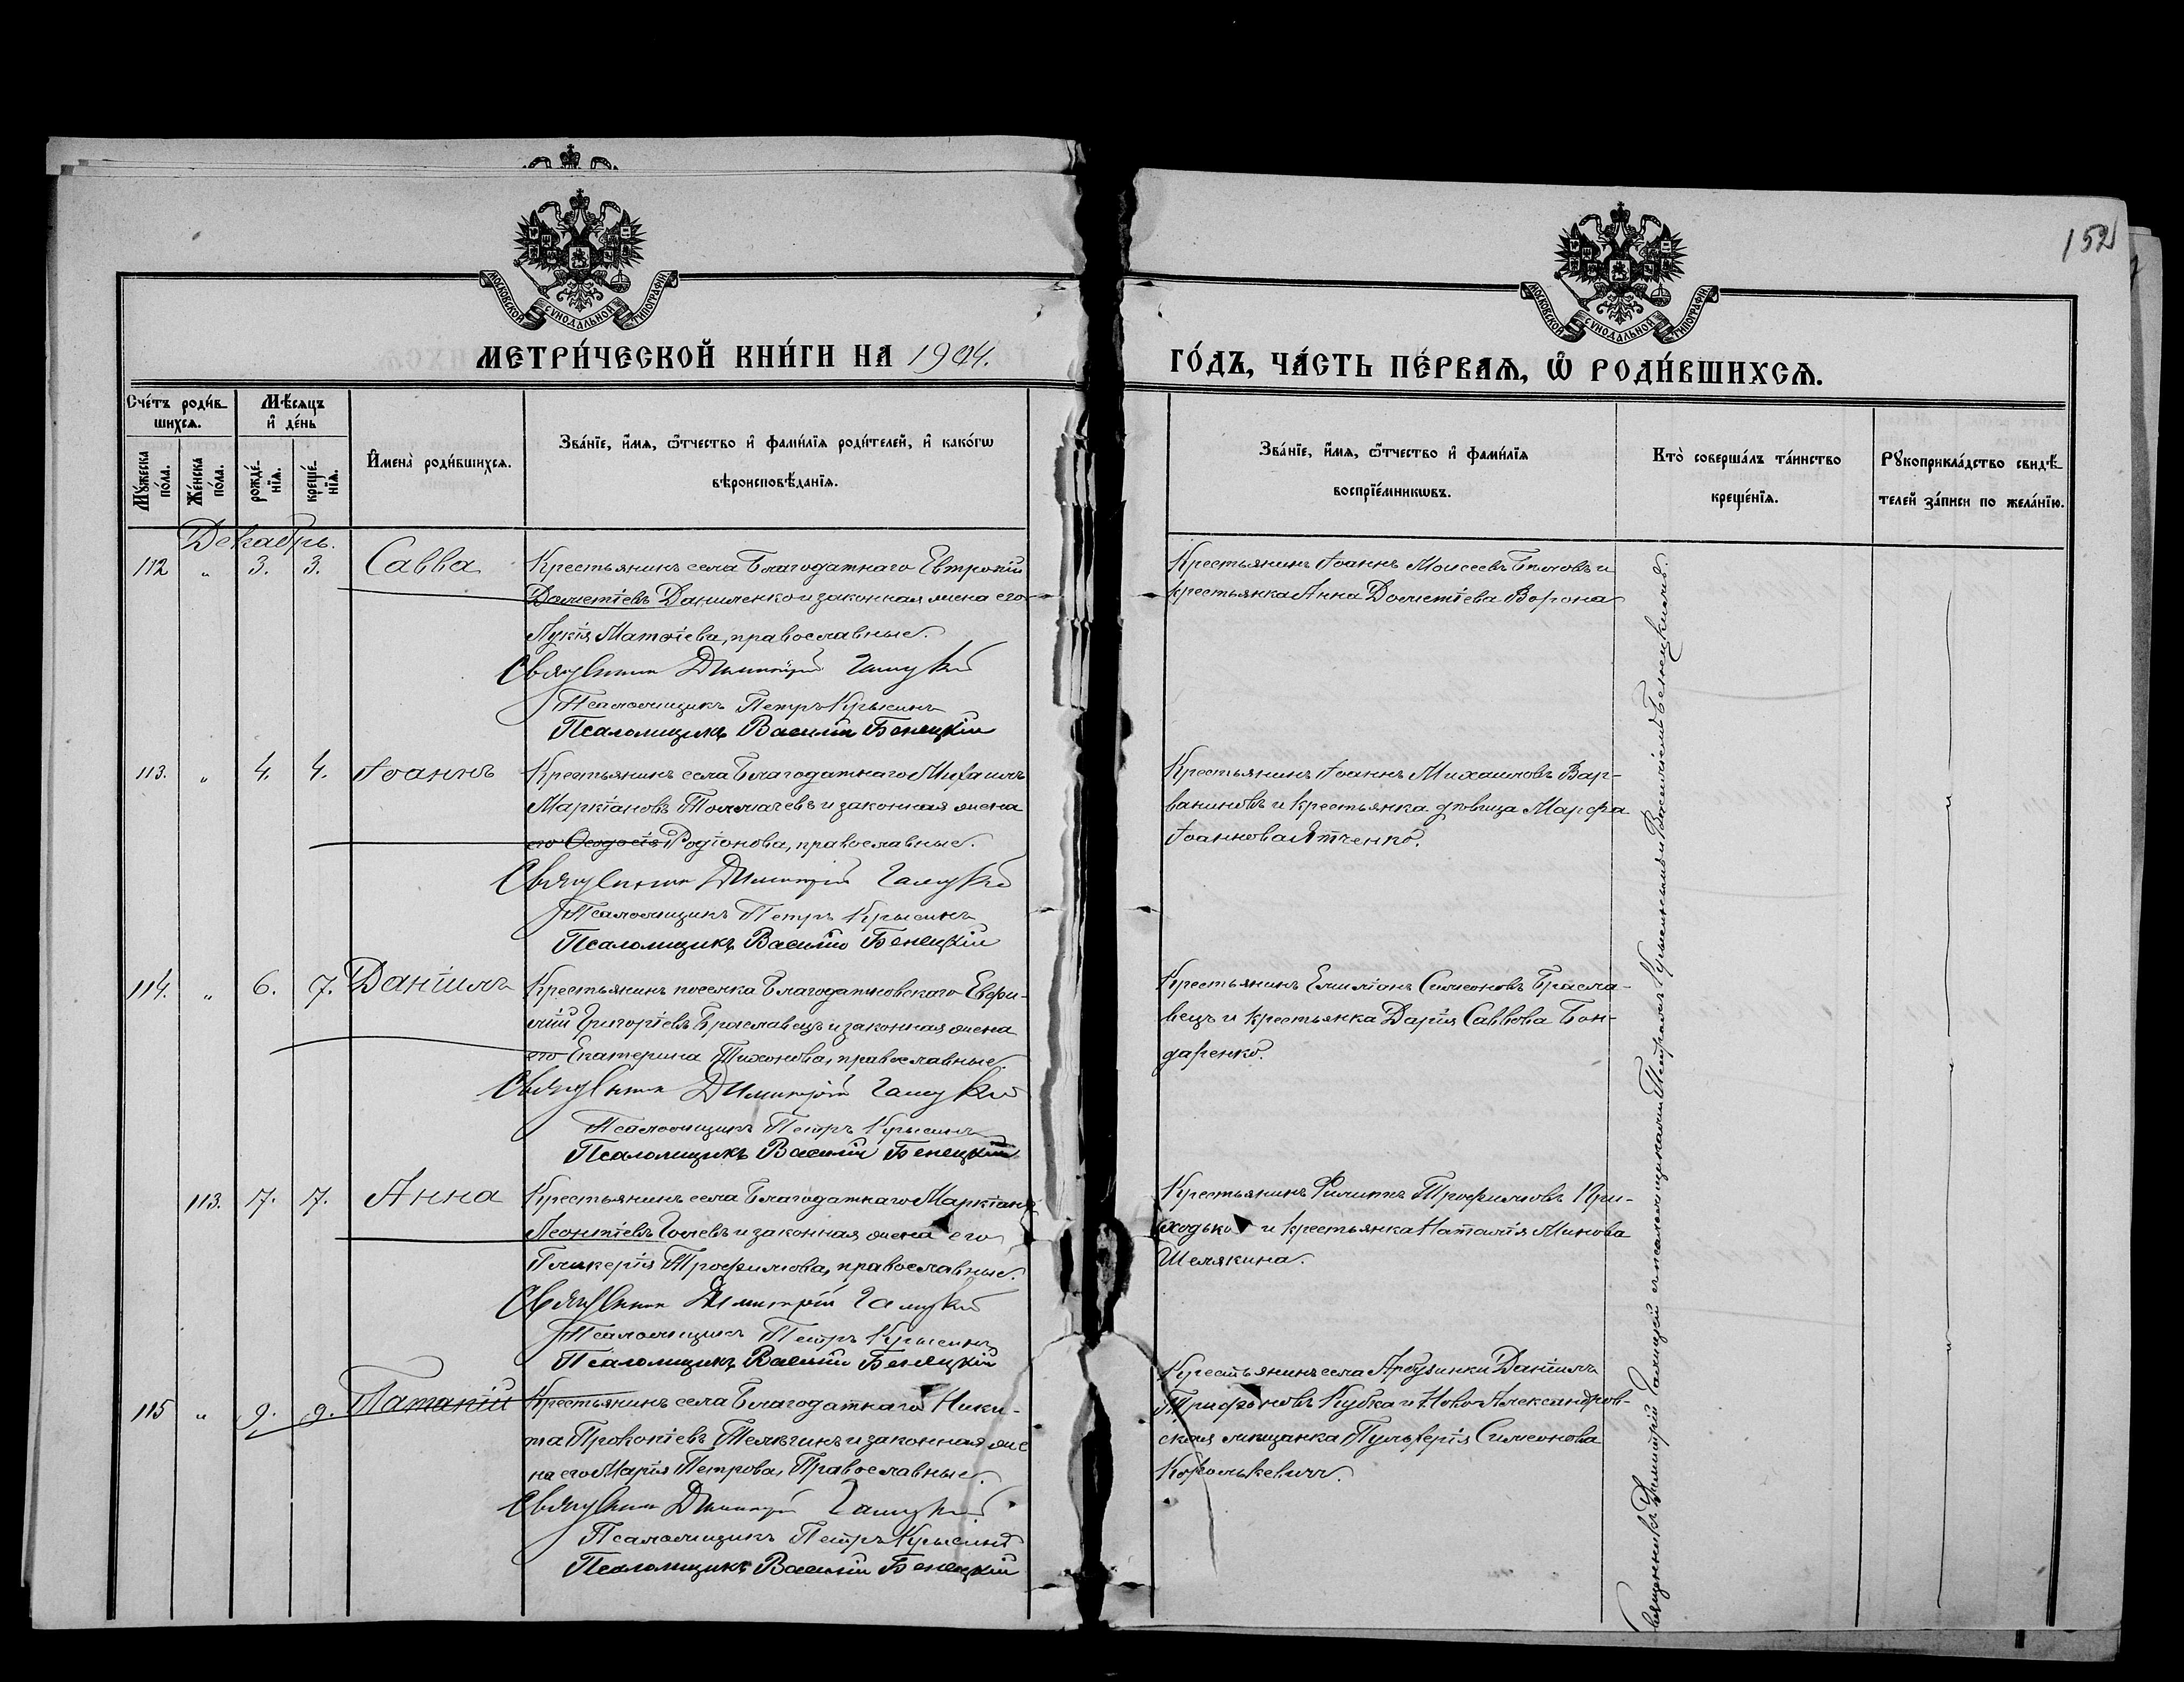 152
МОСКОВСКОЙ СѴНОДАЛЬНОЙ ТИПОГРАФІИ
МОСКОВСКОЙ СѴНОДАЛЬНОЙ ТИПОГРАФІИ
МЕТРИ́ЧЕСКОЙ КНИ́ГИ НА 1904.
ГО́ДЪ, ЧА́СТЬ ПЕ́РВАѦ, Ѽ РОДИ́ВШИХСѦ.
Сче́тъ роди́в-
шихсѧ.
Мѣ́сѧцъ
и҆ де́нь
Мꙋ́жеска
по́ла.
Же́нска
по́ла.
рожде́-
нїѧ.
креще́-
нїѧ.
И҆мена̀ роди́вшихсѧ.
Зва́нїе, и҆́мѧ, ѻ҆́тчество и҆ фами́лїѧ роди́телей, и҆ како́гѡ
вѣроисповѣ́данїѧ.
Зва́нїе, и҆́мѧ, ѻ҆́тчество и҆ фами́лїѧ
воспрїе́мникѡвъ.
Кто̀ соверша́лъ та́инство
креще́нїѧ.
Рꙋкоприкла́дство свидѣ́-
телей за́писи по жела́нїю.
Декабрь.
112 „ 3. 3. Савва
Крестьянинъ села Благодатнаго Евтропій
Дометіевъ Даниленко и законная жена его
Лукія Матѳіева, православные.
Священникъ Димитрій Галицкій
Псаломщикъ Петръ Крысинъ
Псаломщикъ Василій Бенецкій
Крестьянинъ Іоаннъ Моисеевъ Бѣловъ и
крестьянка Анна Дометіева Ворона
113. „ 4. 4. Іоаннъ
Крестьянинъ села Благодатнаго Михаилъ
Маркіановъ Толмачевъ и законная жена
его Ѳеодосія Родіонова, православные.
Священникъ Димитрій Галицкій
Псаломщикъ Петръ Крысинъ
Псаломщикъ Василій Бенецкій
Крестьянинъ Іоаннъ Михаиловъ Вар-
ваниновъ и крестьянка дѣвица Марѳа
Іоаннова Ятченко.
114. „ 6. 7. Даніилъ
Крестьянинъ поселка Благодатновскаго Евфи-
мій Григоріевъ Браславецъ и законная жена
его Екатерина Тихонова, православные.
Священникъ Димитрій Галицкій
Псаломщикъ Петръ Крысинъ
Псаломщикъ Василій Бенецкій
Крестьянинъ Емиліанъ Симеоновъ Брасла-
вецъ и крестьянка Дарія Саввова Бон-
даренко.
113. 7. 7. Анна
Крестьянинъ села Благодатнаго Маркіанъ
Леонтіевъ Гочевъ и законная жена его
Гликерія Трофимова, православные.
Священникъ Димитрій Галицкій
Псаломщикъ Петръ Крысинъ
Псаломщикъ Василій Бенецкій
Крестьянинъ Филиппъ Трофимовъ При-
ходько и крестьянка Наталія Минова
Шелякина.
115 „ 9. 9. Патапій
Крестьянинъ села Благодатнаго Ники-
та Прокопіевъ Телѣгинъ и законная же
на его Марія Петрова, Православные.
Священникъ Димитрій Галицкій
Псаломщикъ Петръ Крысинъ
Псаломщикъ Василій Бенецкій
Крестьянинъ села Арбузинки Даніилъ
Трифоновъ Кубка и Ново Александров-
ская мѣщанка Пульхерія Симеонова
Королькевичъ.
Священникъ Димитрій Галицкій съ псаломщиками Петромъ Крысинымъ и Василіемъ Бенецкимъ.